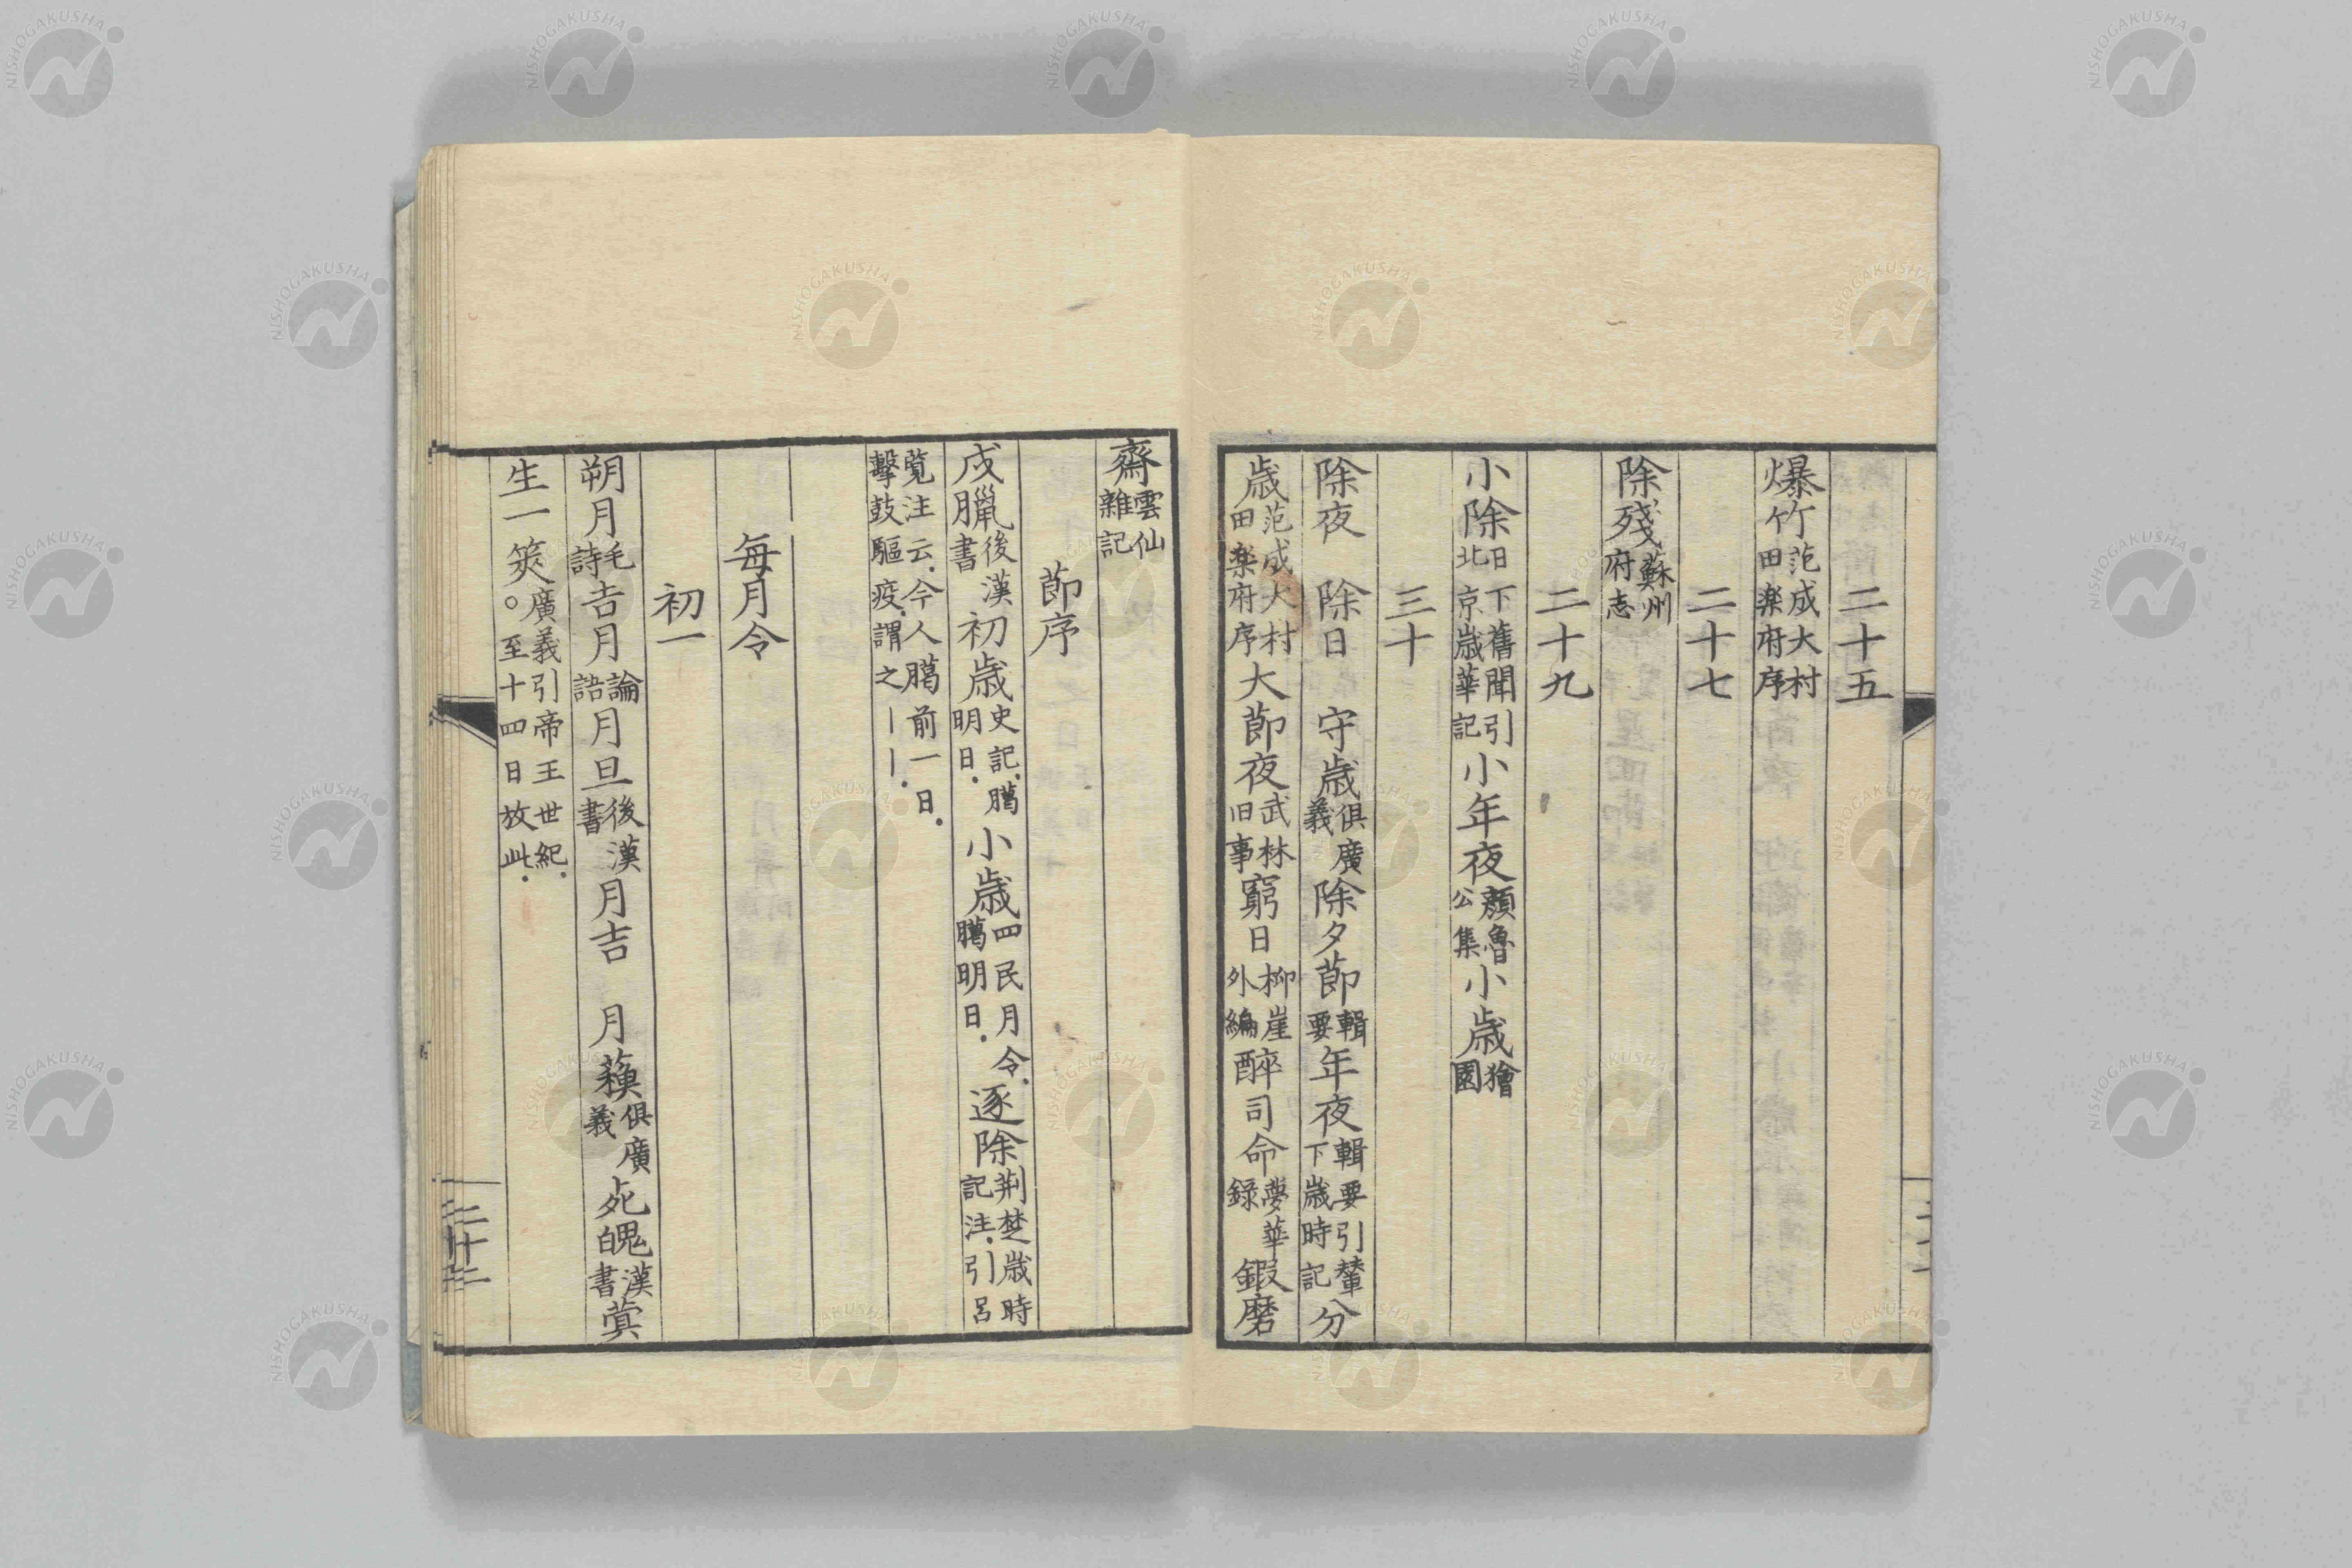 二十五
爆竹范成大村田楽府序
二十七
除殘蘇州府志
二十九
小除日下舊聞引北京歳華記小年夜顏魯公集小歳獪園
三十
除夜 除日 守歳俱廣義除夕節輯要年夜輯要引輦下歳時記分
歳范成大村田楽府序大節夜武林旧事窮日柳崖外編醉司命夢華録鍜磨
齋雲仙雜記
節序
戌臘後漢書初歳史記.臈明日.小歳四民月令.臈明日.逐除荆楚歳時記注.引呂
覧注云.今人臈前一日.擊鼓驅疫.謂之——.
每月令
初一
朔月毛詩吉月論語月旦後漢書月吉 月䕫俱廣義死魄漢書蓂
生一筴廣義引帝王世紀.○至十四日放此.
三十三
NISHOGAKUSHA